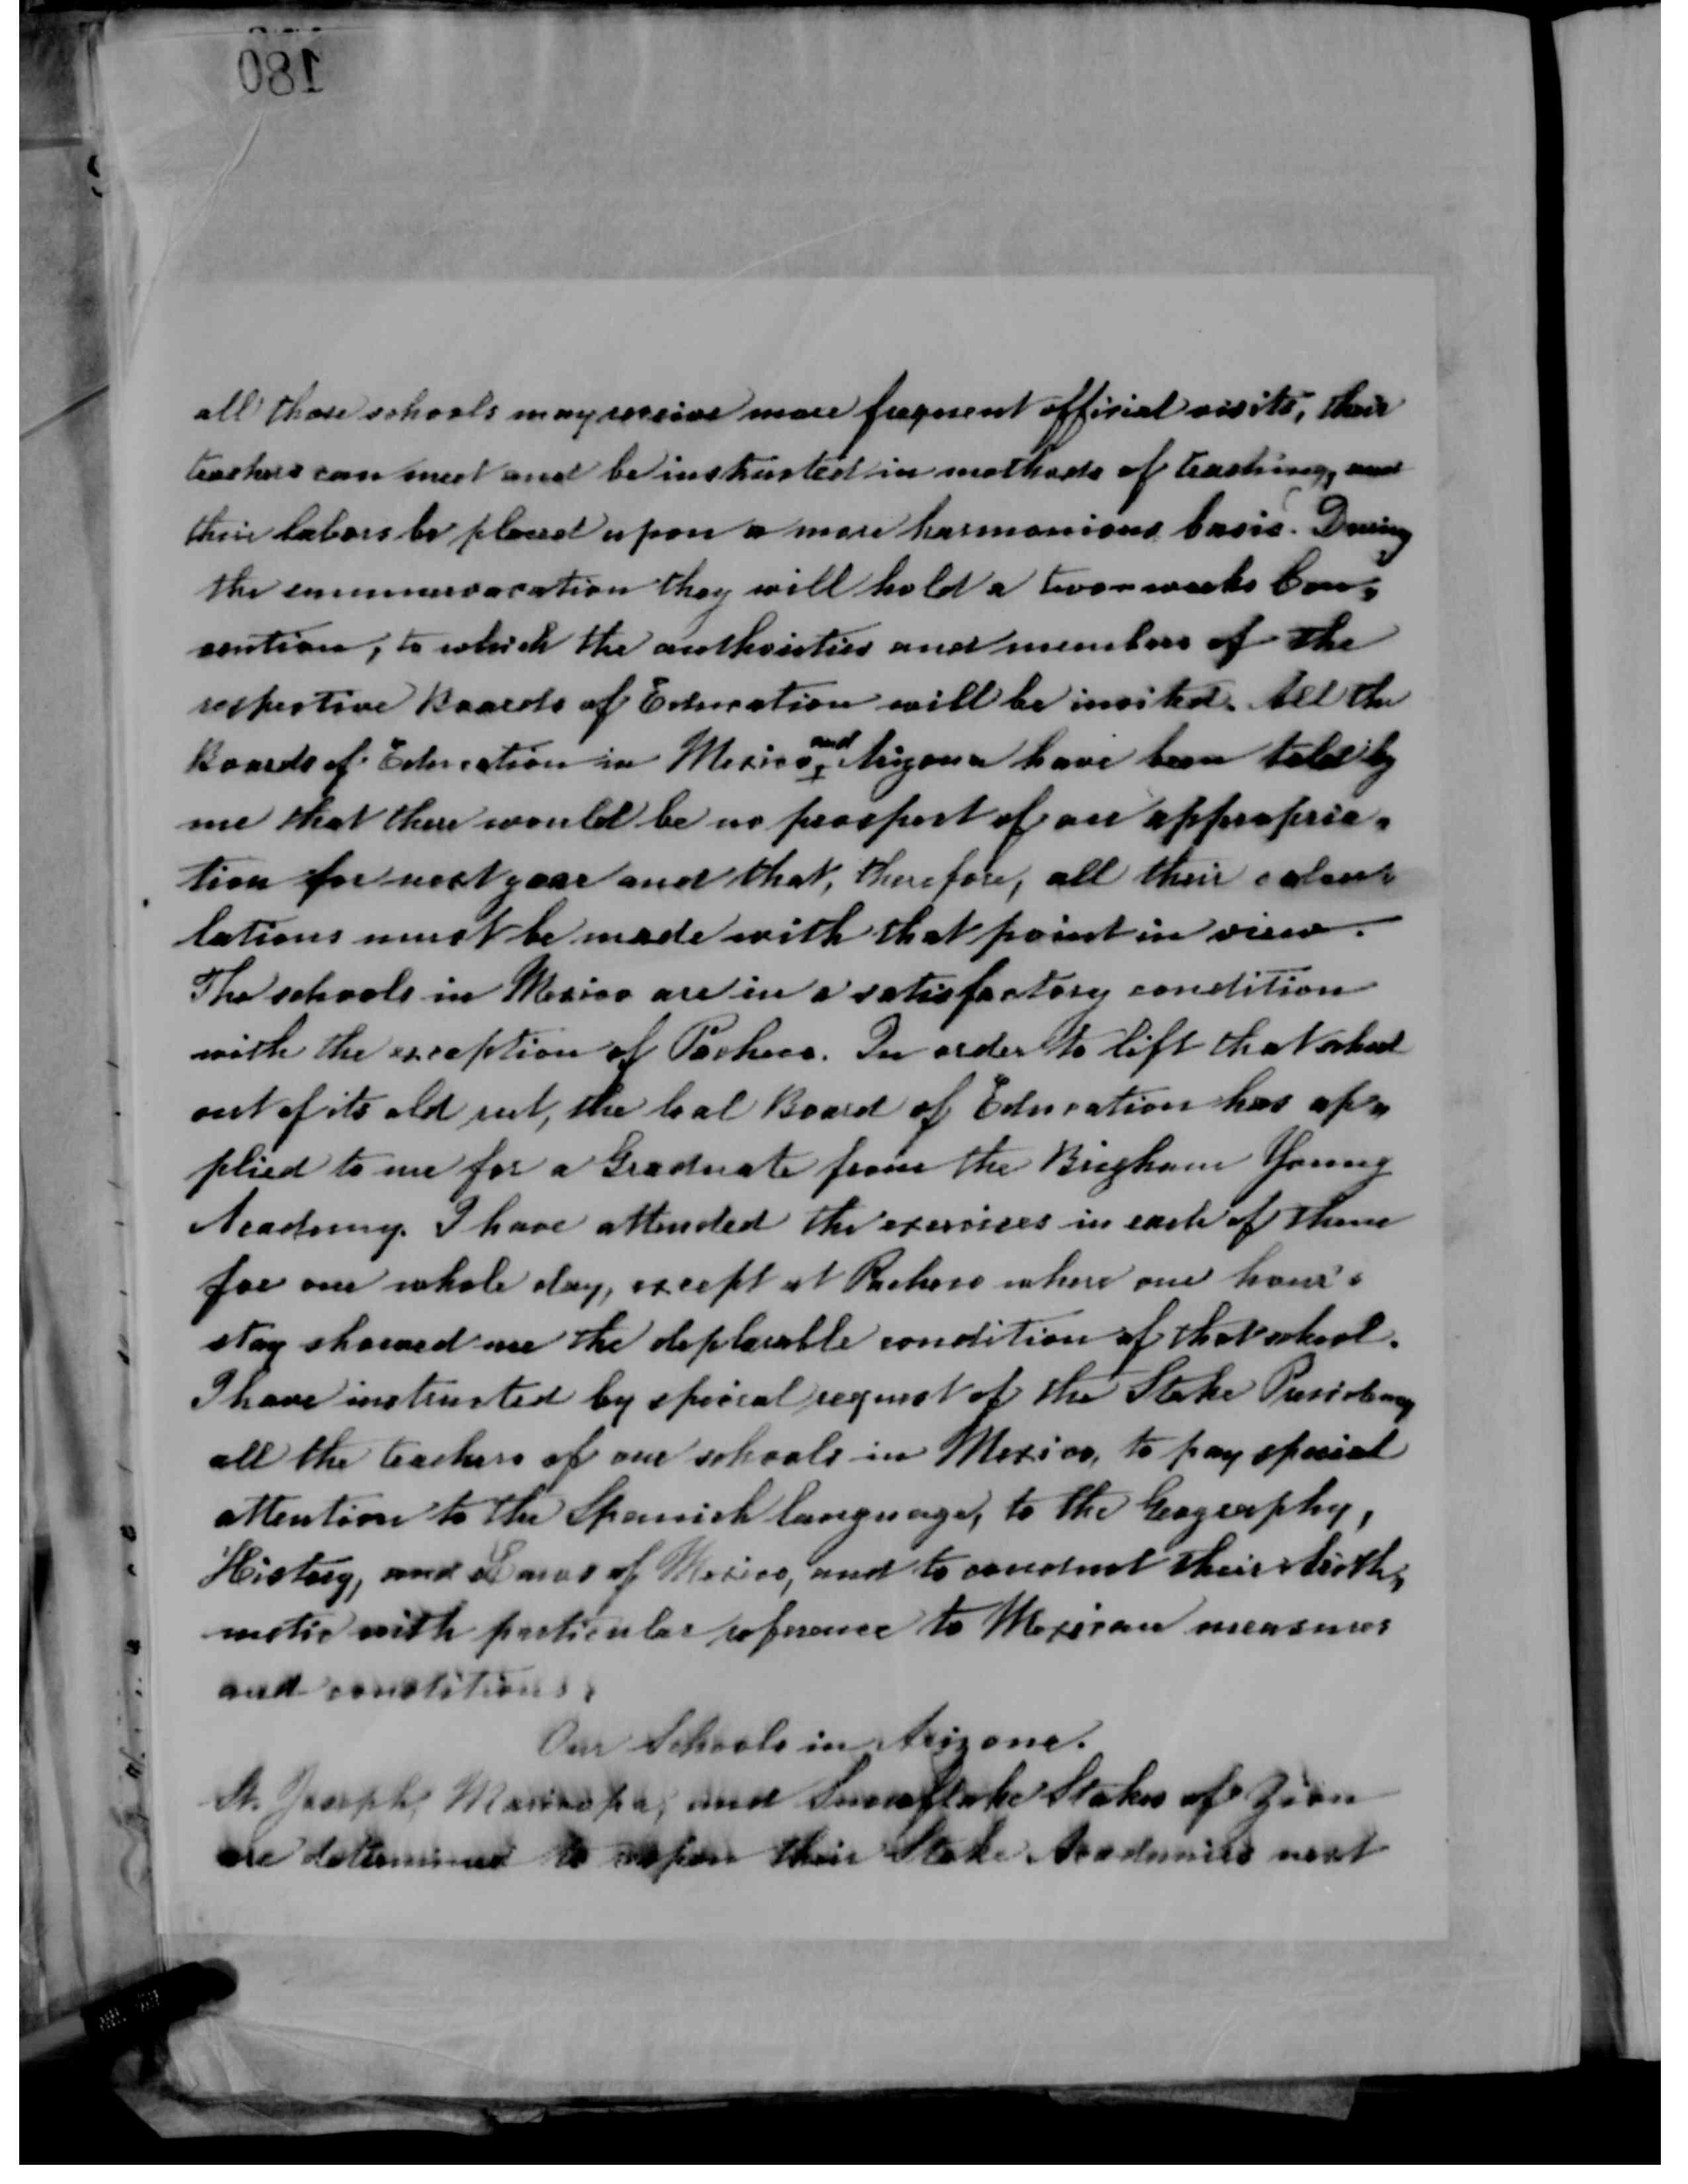 180
all those schools may receive more frequent official visits, their
teachers can meet and be instructed in methods of teaching, and
their labors be placed upon a more harmonious basis. During
the summervacation they will hold a two-weeks Con-
vention, to which the authorities and members of the
respective Boards of Education will be invited. All the
Boards of Education in Mexico and Arizona have been told by
me that there would be no prospect of an appropria-
tion for next year and that, therefore, all their calcu-
lations must be made with that point in view.
The schools in Mexico are in a satisfactory condition
with the exception of Pacheco. In order to lift that school
out of its old rut, the local Board of Education has ap-
plied to me for a Graduate from the Brigham Young
Academy. I have attended the exercises in each of them
for one whole day, except at Pacheco where one hour's
stay showed me the deplorable condition of that school.
I have instructed by special request of the Stake Presidency
all the teachers of our schools in Mexico, to pay special
attention to the Spanish language, to the Geography,
History, and Laws of Mexico, and to conduct their Arith-
metic with particular reference to Mexican measures
and conditions.
Our Schools in Arizona.
St. Joseph, Maricopa, and Snowflake Stakes of Zion
are determined to reopen their Stake Academies next